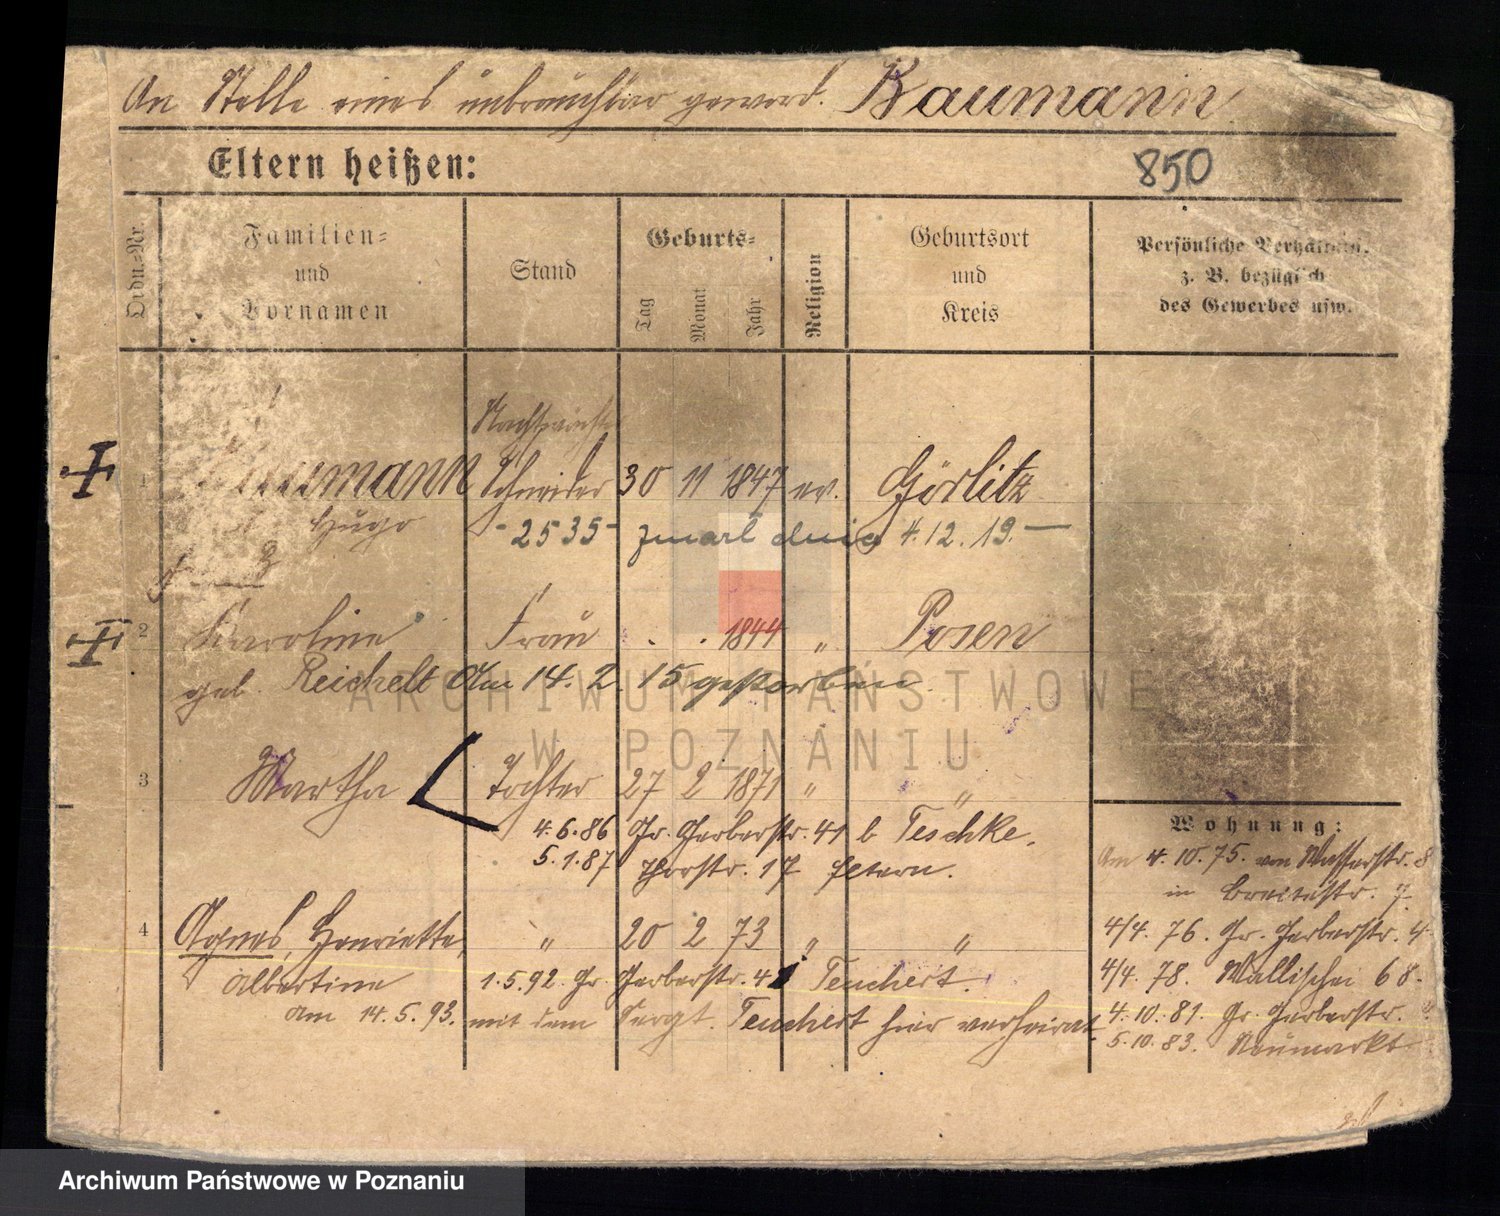 An Stelle eines unbrauchbar geword. Baumann
Eltern heißen:
850
Ordn.-Nr.
Familien-
und
Vornamen
Stand
Geburts-
Tag
Monat
Jahr
Religion
Geburtsort
und
Kreis
Persönliche Verhältn.
z. B. bezüglich
des Gewerbes usw.
1 Baumann Schneider 30 11 1847 ev. Görlitz
Hugo -2535- zmarł dnia 4.12.19.-
2 Karoline Frau . . 1844 " Posen
geb. Reichelt Am 14. 2. 15 gestorben.
3 Martha Tochter 27 2 1871 " "
4.6.86 Gr. Gerberstr. 41 b Teschke.
5.1.87 Thorstr. 17 Eltern.
4 Agnes, Henriette, " 20 2 73 " "
Albertine 1.5.92. Gr. Gerberstr. 41 Teuchert.
am 14.5.93. mit dem Sergt. Teuchert hier verheirat.
Wohnung:
Am 4.10.75. von Wasserstr. 8
in Breitestr. 7.
4/4. 76. Gr. Gerberstr. 4
4/4. 78. Wallischei 68.
4.10.81. Gr. Gerberstr.
5.10.83. Neumarkt
ARCHIWUM PAŃSTWOWE
W POZNANIU
Archiwum Państwowe w Poznaniu